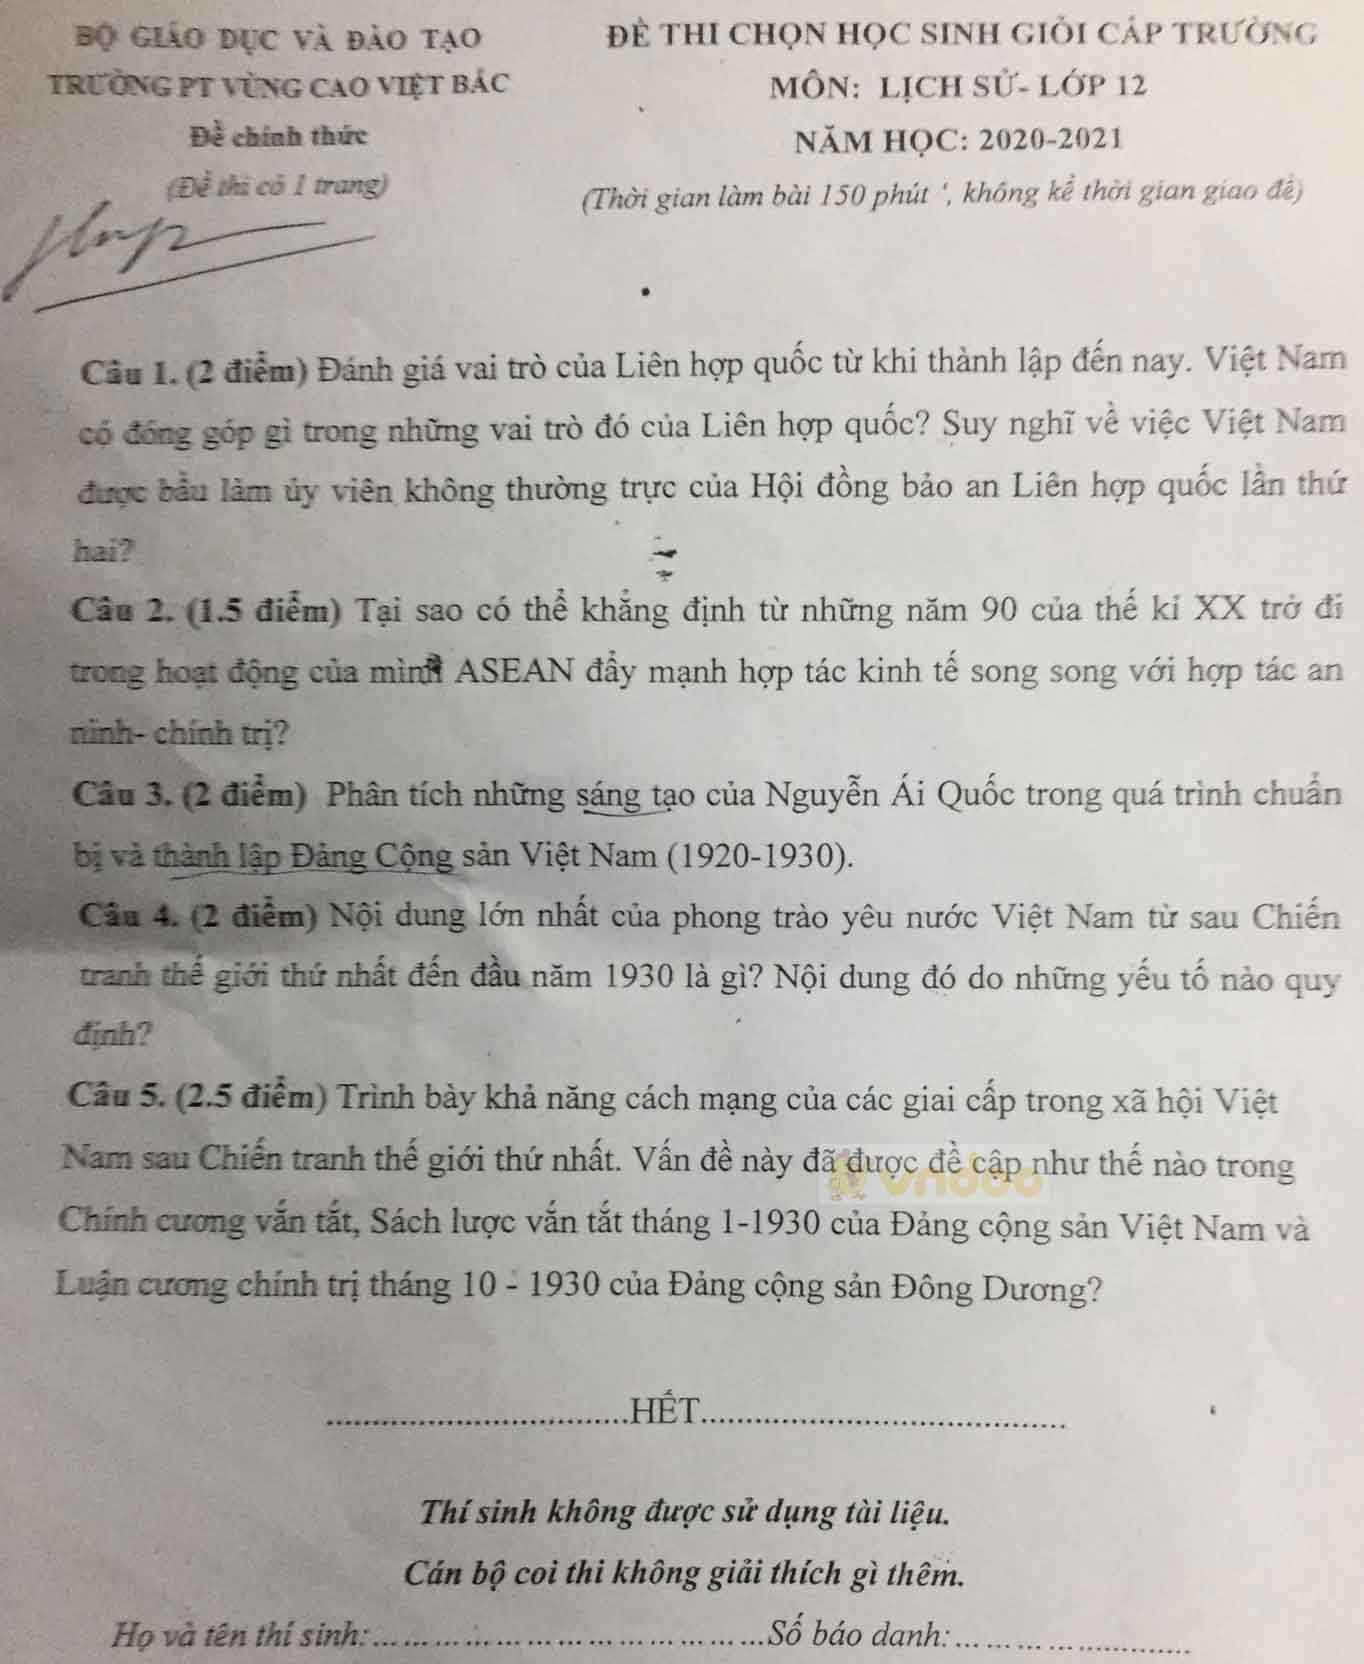 BỘ GIÁO DỤC VÀ ĐÀO TẠO
TRƯỜNG PT VÙNG CAO VIỆT BẮC
Đề chính thức
(Đề thi có 1 trang)
ĐỀ THI CHỌN HỌC SINH GIỎI CẤP TRƯỜNG
MÔN: LỊCH SỬ- LỚP 12
NĂM HỌC: 2020-2021
(Thời gian làm bài 150 phút ', không kể thời gian giao đề)
Câu 1. (2 điểm) Đánh giá vai trò của Liên hợp quốc từ khi thành lập đến nay. Việt Nam
có đóng góp gì trong những vai trò đó của Liên hợp quốc? Suy nghĩ về việc Việt Nam
được bầu làm ủy viên không thường trực của Hội đồng bảo an Liên hợp quốc lần thứ
hai?
Câu 2. (1.5 điểm) Tại sao có thể khẳng định từ những năm 90 của thế kỉ XX trở đi
trong hoạt động của mình ASEAN đẩy mạnh hợp tác kinh tế song song với hợp tác an
ninh- chính trị?
Câu 3. (2 điểm) Phân tích những sáng tạo của Nguyễn Ái Quốc trong quá trình chuẩn
bị và thành lập Đảng Cộng sản Việt Nam (1920-1930).
Câu 4. (2 điểm) Nội dung lớn nhất của phong trào yêu nước Việt Nam từ sau Chiến
tranh thế giới thứ nhất đến đầu năm 1930 là gì? Nội dung đó do những yếu tố nào quy
định?
Câu 5. (2.5 điểm) Trình bày khả năng cách mạng của các giai cấp trong xã hội Việt
Nam sau Chiến tranh thế giới thứ nhất. Vấn đề này đã được đề cập như thế nào trong
Chính cương vắn tắt, Sách lược vắn tắt tháng 1-1930 của Đảng cộng sản Việt Nam và
Luận cương chính trị tháng 10 - 1930 của Đảng cộng sản Đông Dương?
vndoc
................................HẾT.......................................
Thí sinh không được sử dụng tài liệu.
Cán bộ coi thi không giải thích gì thêm.
Họ và tên thí sinh:.......................................Số báo danh:.........................